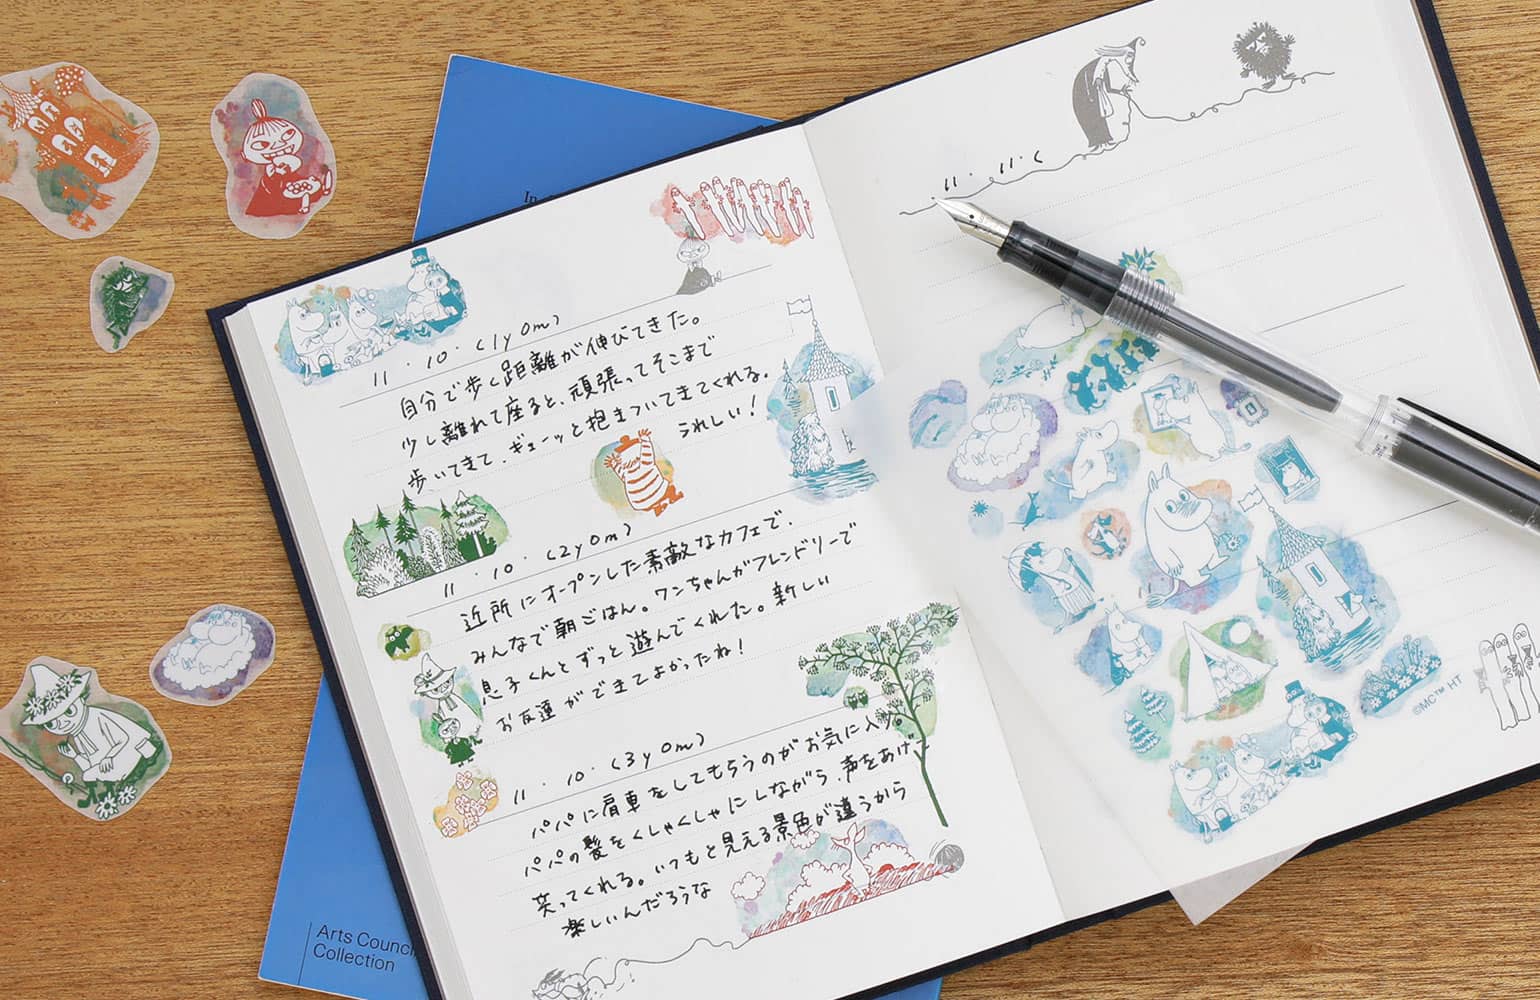 11・10・(1y0m)
自分で歩く距離が伸びてきた。
少し離れて座ると、頑張ってそこまで
歩いてきて、ギューッと抱きついてきてくれる。
うれしい!
11・10・(2y0m)
近所にオープンした素敵なカフェで、
みんなで朝ごはん。ワンちゃんがフレンドリーで
息子くんとずっと遊んでくれた。新しい
お友達ができてよかったね!
11・10・(3y0m)
パパに肩車をしてもらうのがお気に入り。
パパの髪をくしゃくしゃにしながら、声をあげ
笑ってくれる。いつもと見える景色が違うから
楽しいんだろうな
11・11・(
©MC™ HT
Arts Counci
Collection